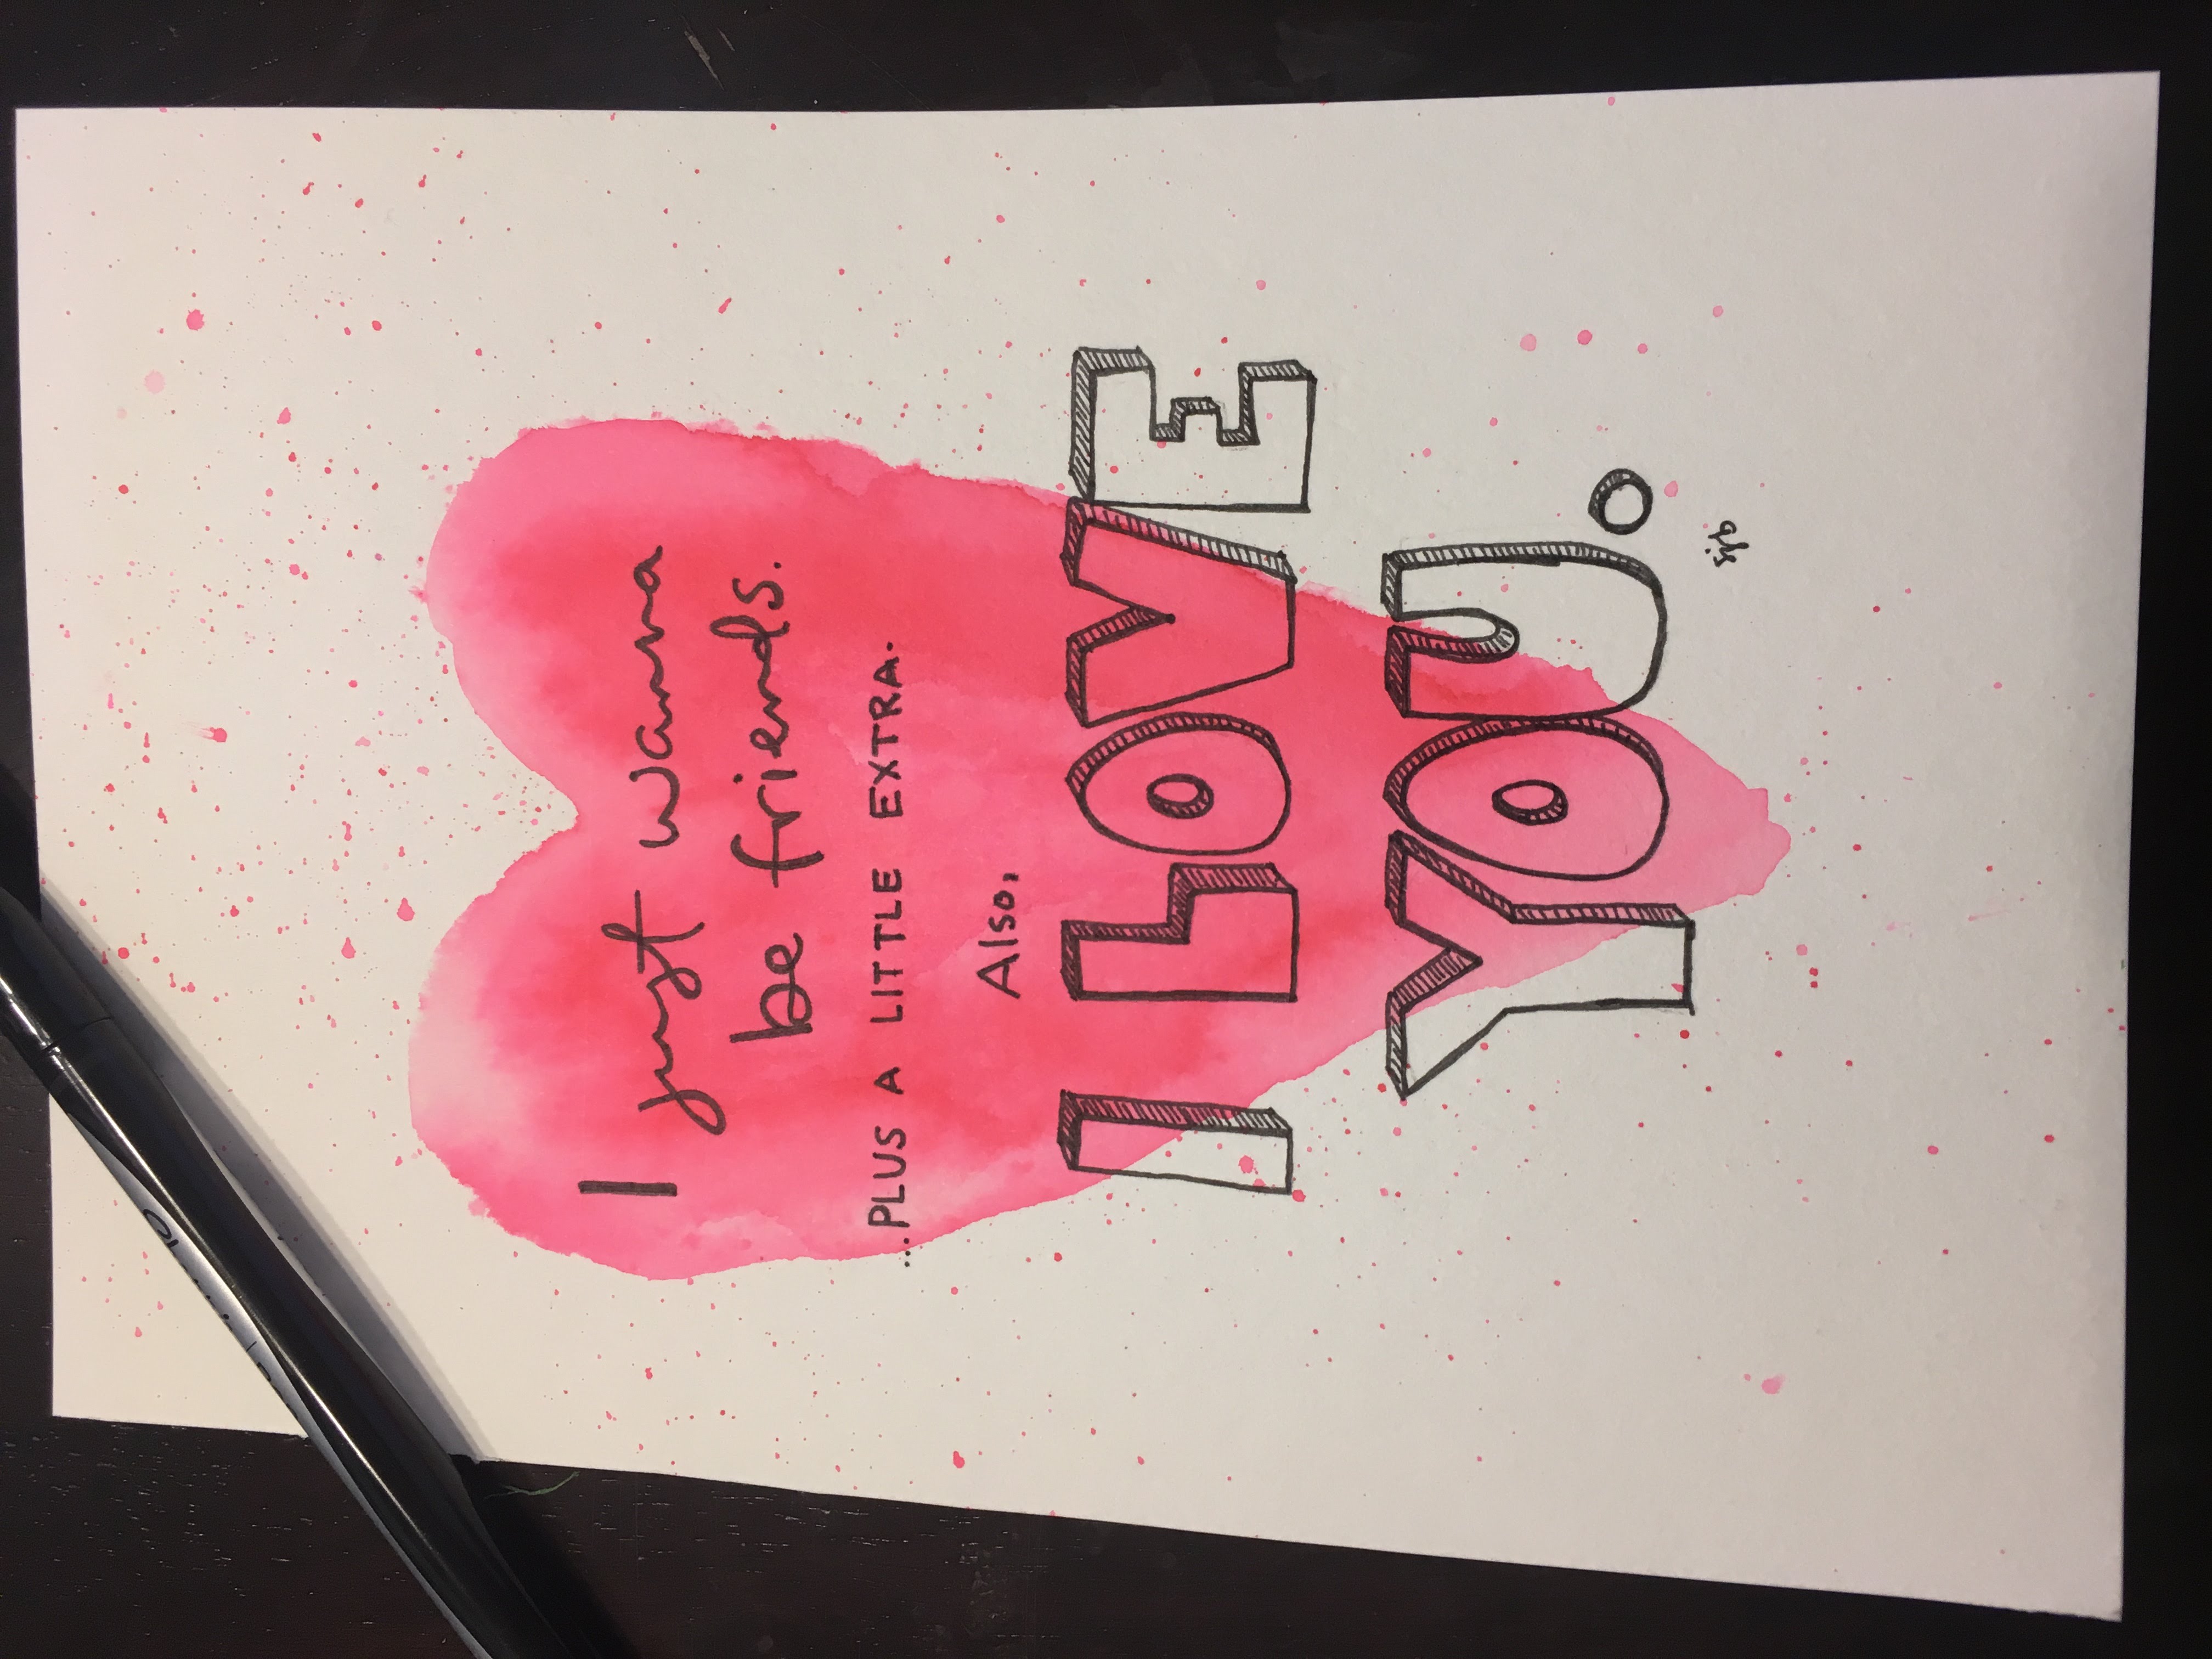 I just wanna
be friends.
...PLUS A LITTLE EXTRA.
Also,
I LOVE
YOU.
sjb